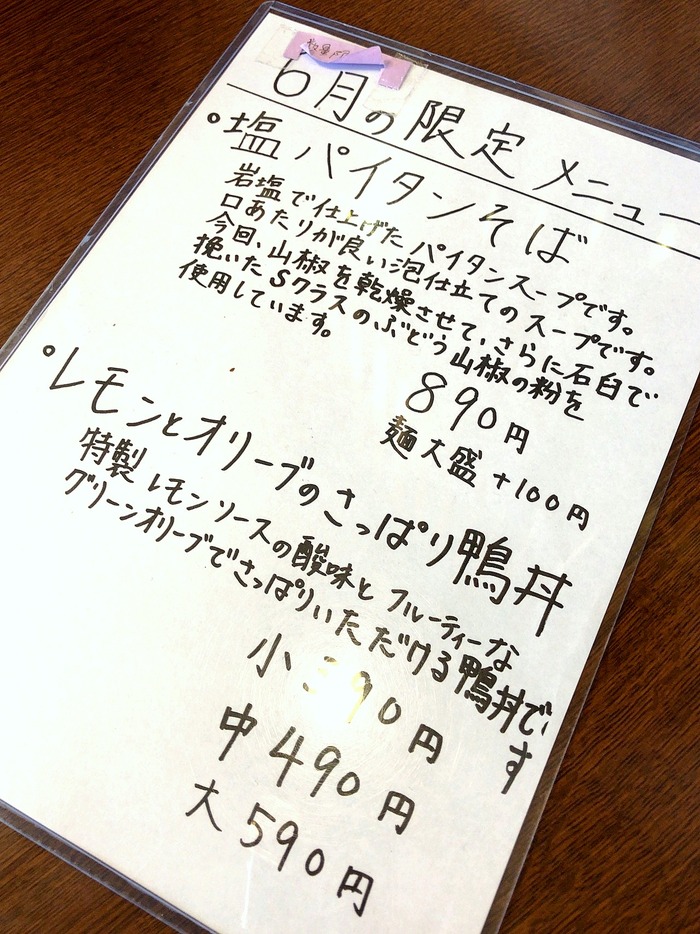 6月の限定メニュー
・塩パイタンそば
岩塩で仕上げたパイタンスープです。
口あたりが良い泡仕立てのスープです。
今回、山椒を乾燥させて、さらに石臼で
挽いたSクラスのぶどう山椒の粉を
使用しています。
890円
麺大盛+100円
・レモンとオリーブのさっぱり鴨丼
特製レモンソースの酸味とフルーティーな
グリーンオリーブでさっぱりいただける鴨丼で
す
小 390円
中490円
大590円